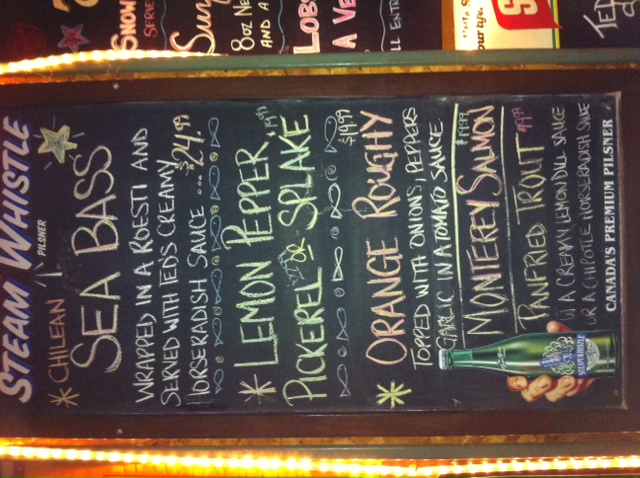 STEAM WHISTLE
PILSNER
CHILEAN
SEA BASS
WRAPPED IN A ROESTI AND
SERVED WITH TED'S CREAMY
HORSERADISH SAUCE ... $24.99
LEMON PEPPER
PICKEREL OR SPLAKE
$19.99
ORANGE ROUGHY
TOPPED WITH ONIONS, PEPPERS
GARLIC IN A TOMATO SAUCE
MONTEREY SALMON
PANFRIED TROUT
IN A CREAMY LEMON DILL SAUCE
OR A CHIPOTLE HORSERADISH SAUCE
CANADA'S PREMIUM PILSNER
SNOW
SERVE
8oz NE
AND A
LOBS
A VE
LL ENTR
TED